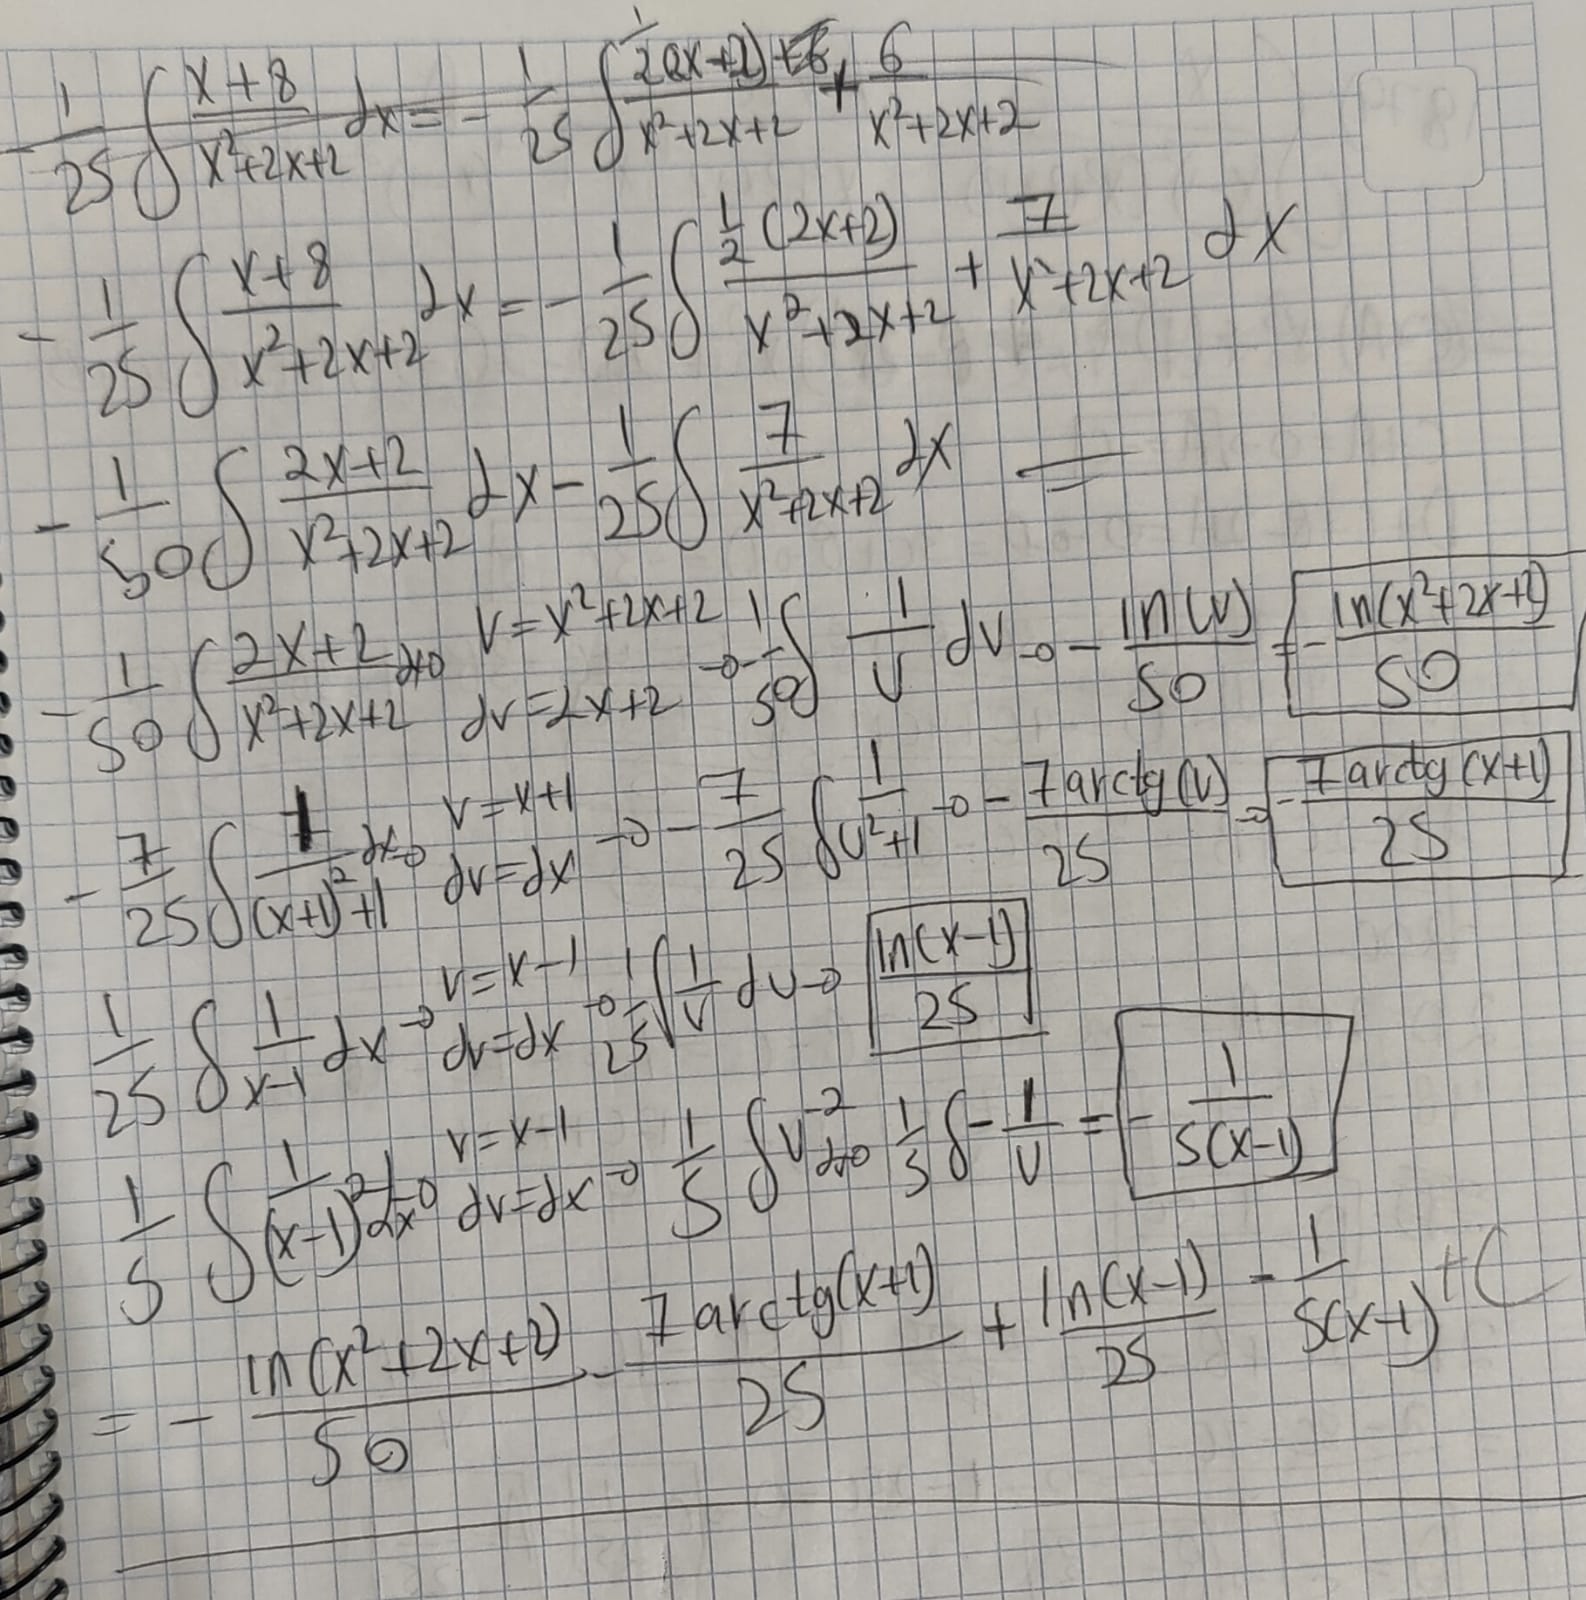 -1/25 ∫ (x+8)/(x²+2x+2) dx = -1/25 ∫ 1/2(2x+2)/(x²+2x+2) + 6/(x²+2x+2)
-1/25 ∫ (x+8)/(x²+2x+2) dx = -1/25 ∫ (1/2 (2x+2))/(x²+2x+2) + 7/(x²+2x+2) dx
-1/50 ∫ (2x+2)/(x²+2x+2) dx - 1/25 ∫ 7/(x²+2x+2) dx =
-1/50 ∫ (2x+2)/(x²+2x+2) dx → v=x²+2x+2 dv=2x+2 → -1/50 ∫ 1/v dv → -ln(v)/50 = -ln(x²+2x+2)/50
-7/25 ∫ 1/((x+1)²+1) dx → v=x+1 dv=dx → -7/25 ∫ 1/(v²+1) → -7arctg(v)/25 → -7arctg(x+1)/25
1/25 ∫ 1/(x-1) dx → v=x-1 dv=dx → 1/25 ∫ 1/v dv → ln(x-1)/25
1/5 ∫ 1/(x-1)² dx → v=x-1 dv=dx → 1/5 ∫ v⁻² dv → 1/5 ∫ -1/v = -1/(5(x-1))
= -ln(x²+2x+2)/50 - 7arctg(x+1)/25 + ln(x-1)/25 - 1/(5(x-1)) + C